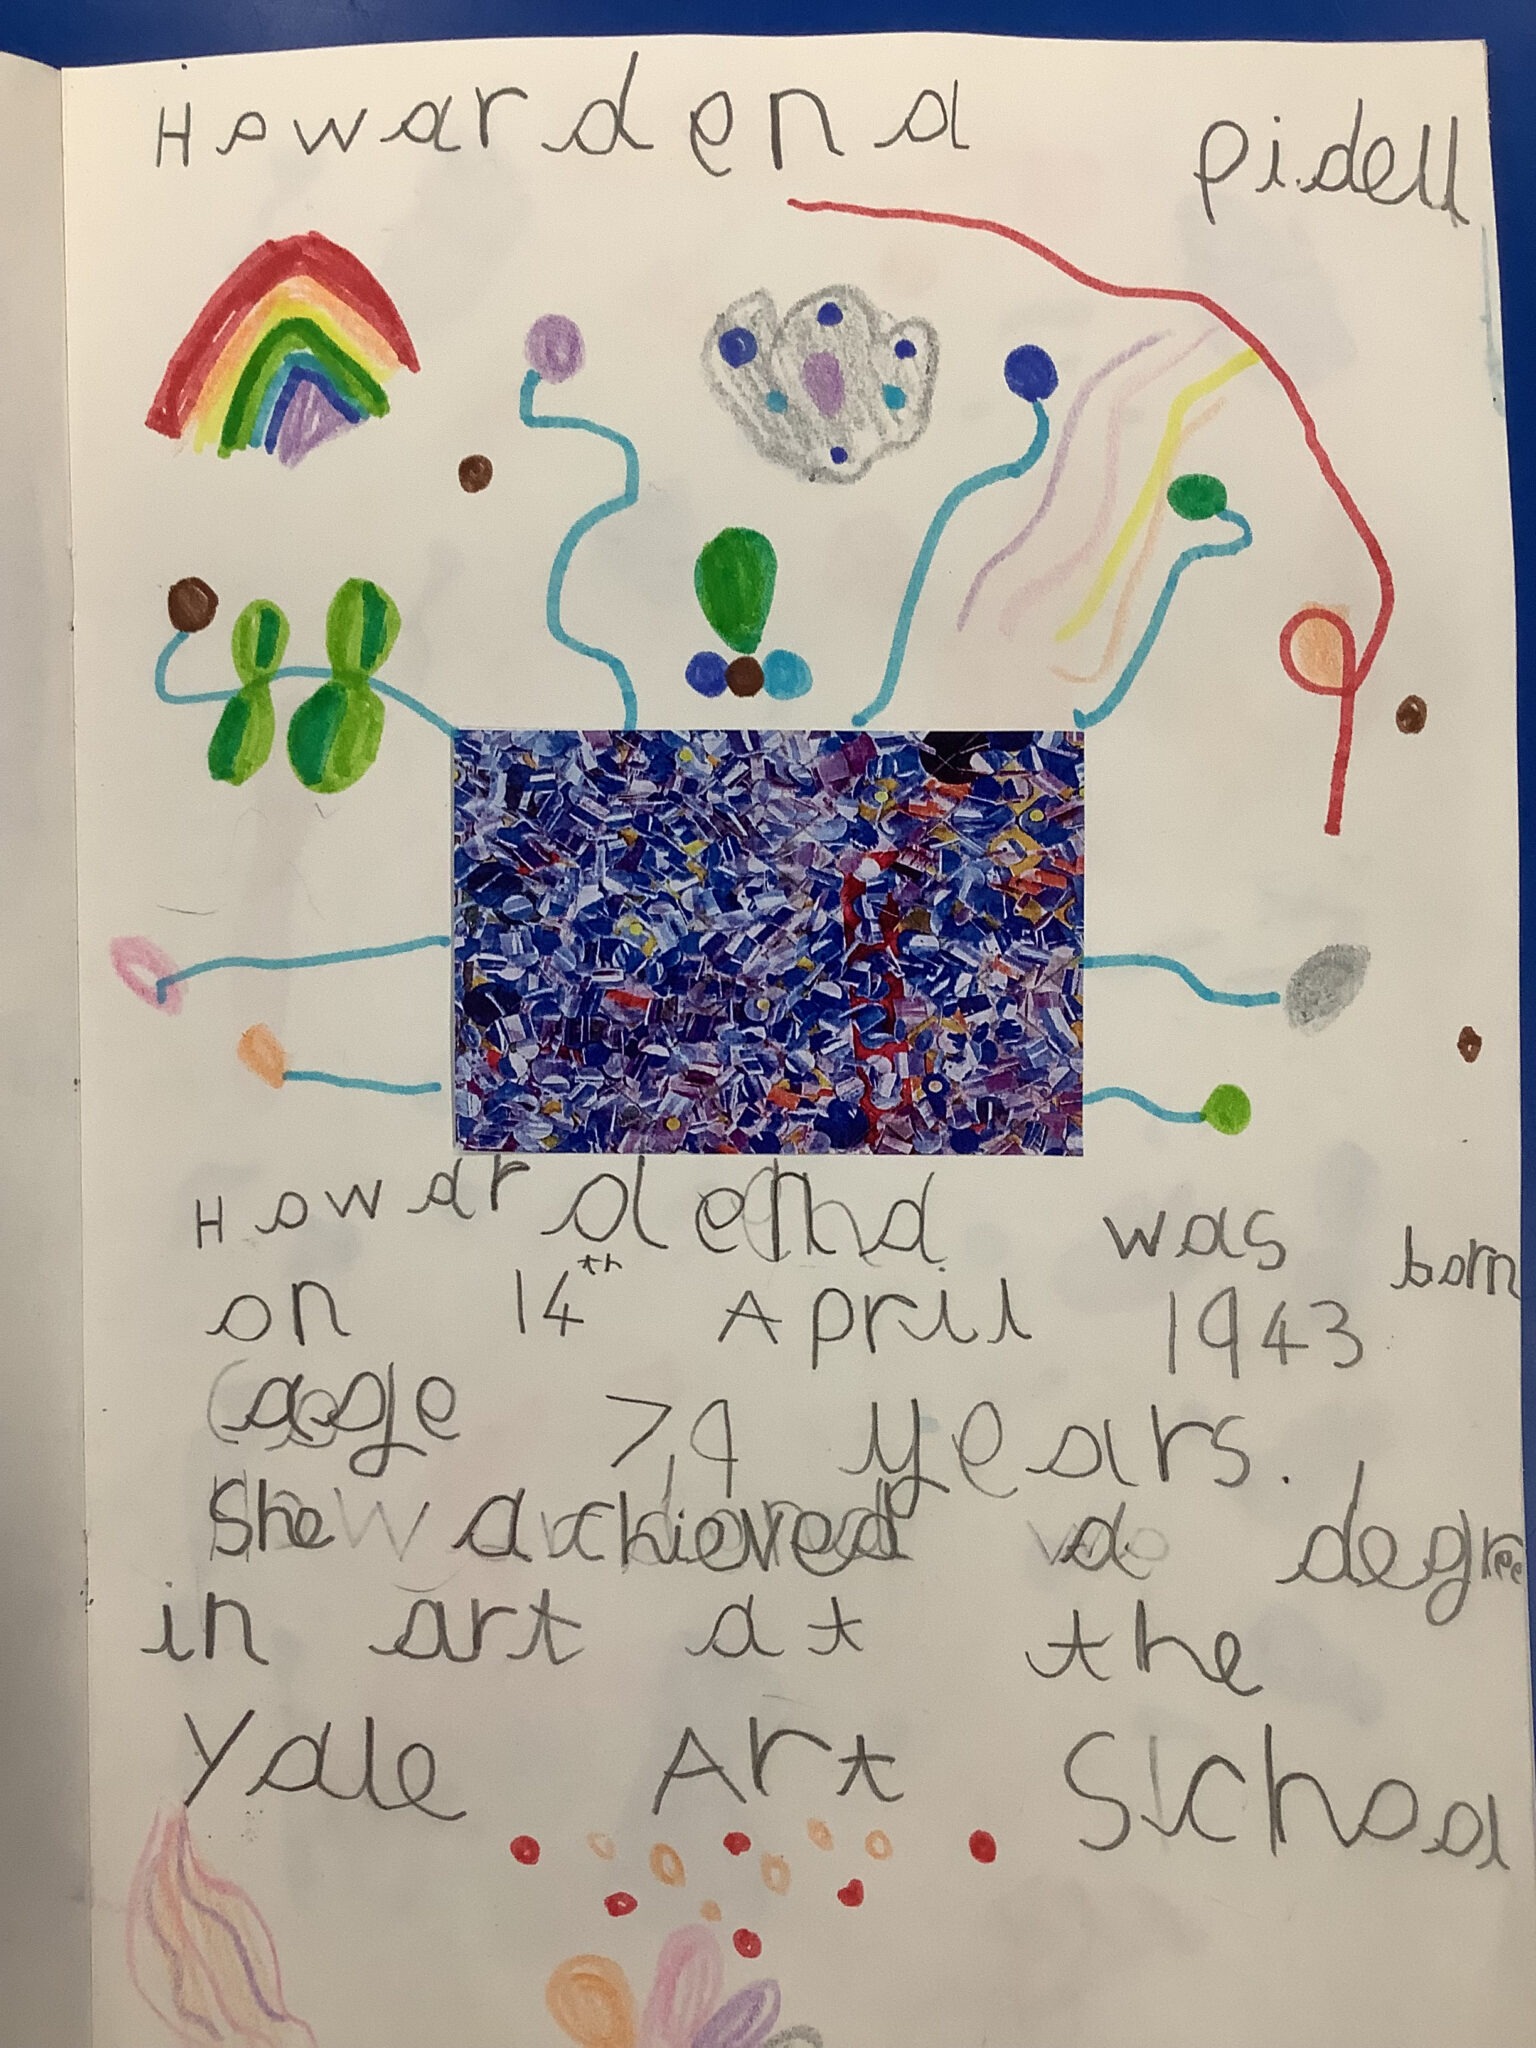 Howardena Pidell
Howardena was born
on 14th April 1943
age 79 years.
She achieved a degree
in art at the
Yale Art School